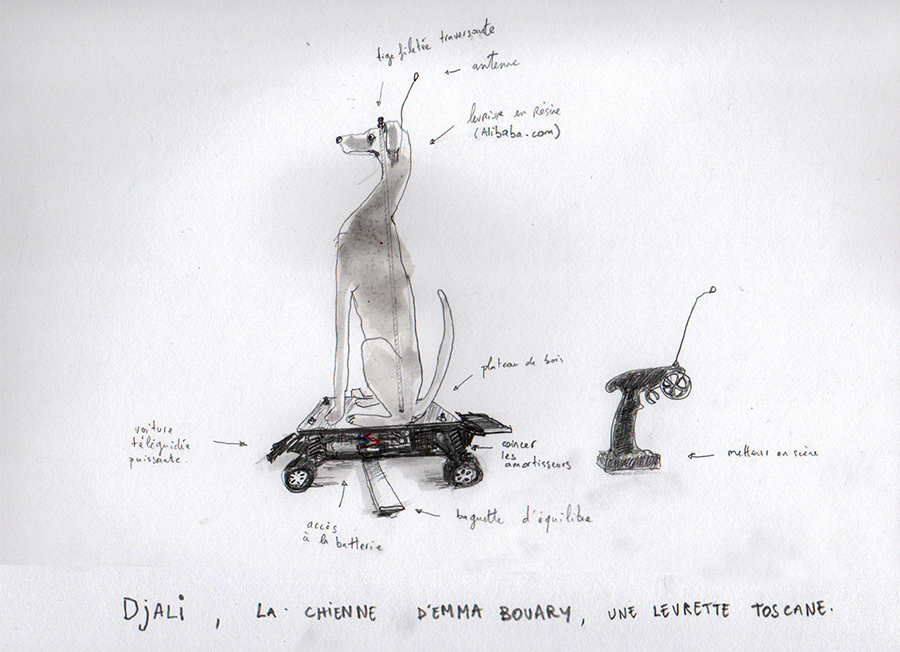 tige filetée traversante
antenne
levrette en résine
(Alibaba.com)
plateau de bois
voiture
téléguidée
puissante.
coincer
les
amortisseurs
metteur en scène
baguette d'équilibre
accès
à la batterie
DjALi, LA CHIENNE D'EMMA BOVARY, UNE LEVRETTE TOSCANE.